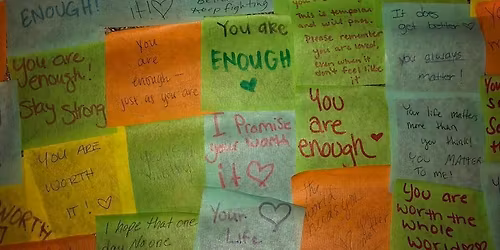 ENOUGH!
it! ♡
keep fighting
You are
enough!
Stay strong
You
are
enough
just as you are
You are
ENOUGH
This is temporary
and will pass.
Please remember
you are loved,
even when it
don't feel like
it
It does
get better ♡
you always
matter!
I Promise
your worth
it ♡
You
are
enough ♥
Your life matters
more than
you think!
YOU MATTER
TO me!
YOU ARE
WORTH
IT! ♡
WORTH
I hope that one
day no one
Your
Life
the
world
needs you
You are
worth the
whole